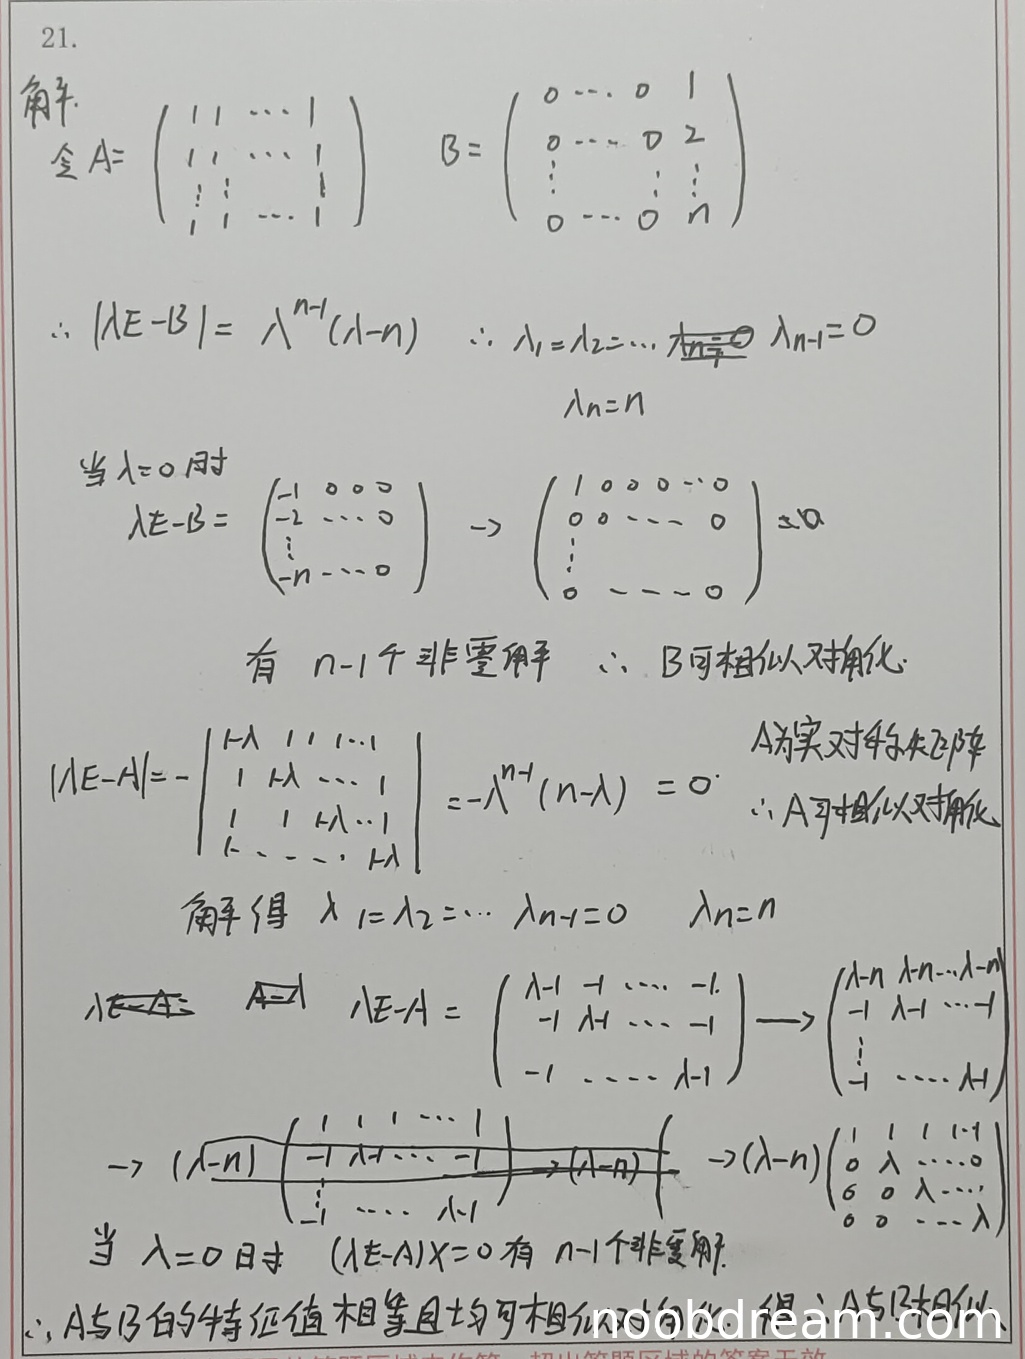 21.
解.
令 A= ( 1 1 ⋯ 1 / 1 1 ⋯ 1 / ⋮ ⋮ ⋮ / 1 1 ⋯ 1 ) B= ( 0 ⋯ 0 1 / 0 ⋯ 0 2 / ⋮ ⋮ ⋮ / 0 ⋯ 0 n )
∴ |λE-B| = λ^{n-1}(λ-n) ∴ λ₁=λ₂=⋯ λ_{n-1}=0
λ_n=n
当 λ=0 时
λE-B= ( -1 0 0 0 / -2 ⋯ 0 / ⋮ / -n ⋯ 0 ) → ( 1 0 0 0 ⋯ 0 / 0 0 ⋯ 0 / ⋮ / 0 ⋯ 0 ) =0
有 n-1个非零解 ∴ B可相似对角化.
|λE-A|= - | 1-λ 1 1 1⋯1 / 1 1-λ ⋯ 1 / 1 1 1-λ⋯1 / 1 ⋯ 1-λ | = -λ^{n-1}(n-λ) = 0
A为实对称矩阵
∴ A可相似对角化
解得 λ₁=λ₂=⋯ λ_{n-1}=0 λ_n=n
λE-A = ( λ-1 -1 ⋯ -1 / -1 λ-1 ⋯ -1 / -1 ⋯ λ-1 ) → ( λ-n λ-n⋯λ-n / -1 λ-1 ⋯-1 / ⋮ / -1 ⋯ λ-1 )
→ (λ-n) ( 1 1 1 ⋯ 1 / -1 λ-1 ⋯ -1 / ⋮ / -1 ⋯ λ-1 ) → (λ-n) → (λ-n) ( 1 1 1 1⋯1 / 0 λ ⋯ 0 / 0 0 λ ⋯ / 0 0 ⋯ λ )
当 λ=0 时 (λE-A)X=0 有 n-1个非零解.
∴ A与B的特征值相等且均可相似对角化. 得∴A与B相似.
noobdream.com